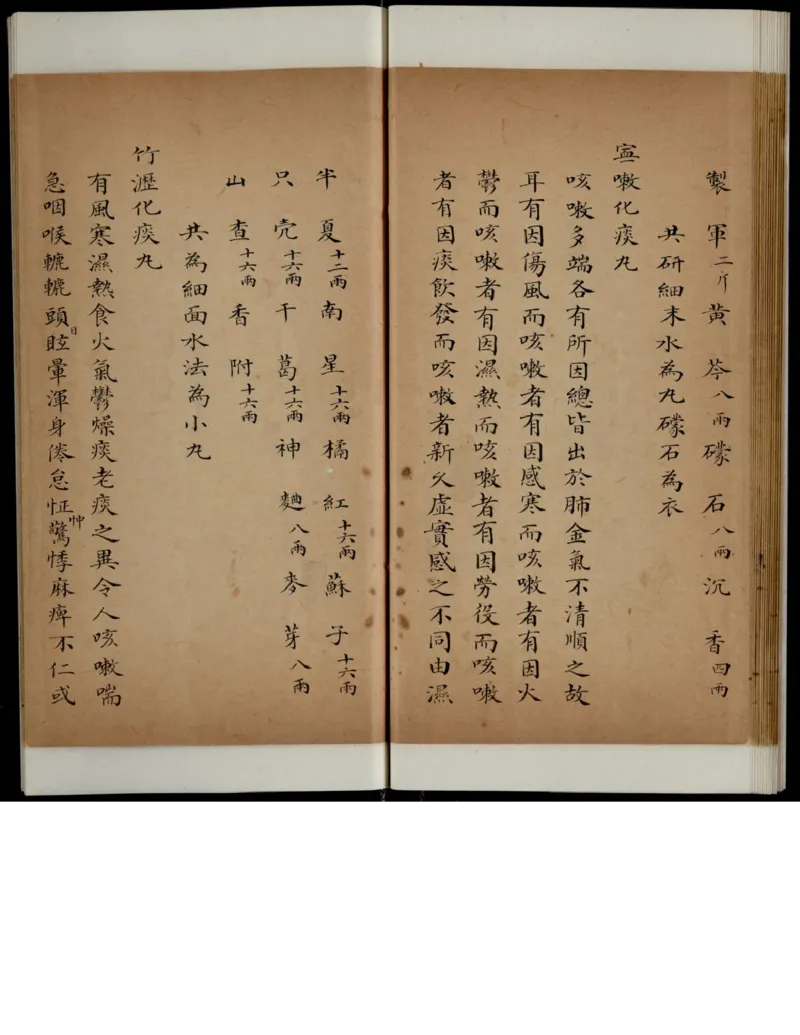 製軍二斤黃芩八兩礞石八兩沉香四兩
共研細末水為丸礞石為衣
寧嗽化痰丸
咳嗽多端各有所因總皆出於肺金氣不清順之故
耳有因傷風而咳嗽者有因感寒而咳嗽者有因火
鬱而咳嗽者有因濕熱而咳嗽者有因勞役而咳嗽
者有因痰飲發而咳嗽者新久虛實感之不同由濕
半夏十二兩南星十六兩橘紅十六兩蘇子十六兩
只壳十六兩干葛十六兩神麯八兩麥芽八兩
山查十六兩香附十六兩
共為細面水法為小丸
竹瀝化痰丸
有風寒濕熱食火氣鬱燥痰老痰之異令人咳嗽喘
急咽喉轆轆頭目眩暈渾身倦怠怔忡驚悸麻痺不仁或